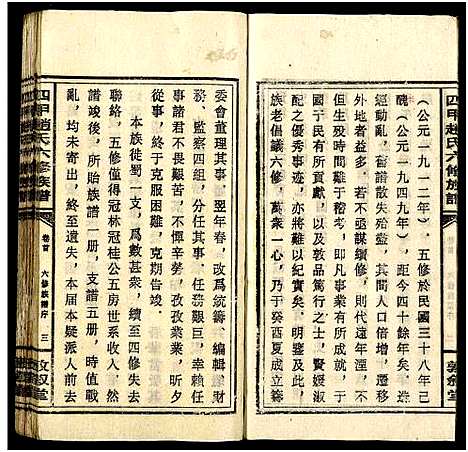 四甲趙氏六修族譜
（公元一九一二年），五修於民國三十八年己
醜（公元一九四九年），距今四十餘年矣，于
運動亂，舊譜散失殆盡，其間人口倍增，遷徙
不少，若不亟謀續修，則代遠年湮，不
但生歿難于稽考，即凡事業有所成就，于
國于民有功德者，以及敦品篤行之士，賢媛淑
之優秀事迹，亦將難以紀實矣。于明
族老倡議六修，萬衆一心，乃于癸酉夏成立籌
敦叙堂
委會董理其事，翌年春，改爲統籌、編輯、財
務、監察四組，分任其事。任務艱巨，幸賴任
事者不畏艱苦，不憚辛勞，孜孜業業，昕夕
從事，終于克服困難，克期告竣。
本族徙蜀一支，爲數甚衆，續至四修失去
聯絡，五修僅得冠林冠桂公五房世系收入。
譜竣後，所貽族譜一册，支譜五册，時值戰
亂，均未寄出，終至遺失，本届本擬派人前去
四甲趙氏六修族譜
卷首
六修族譜序
三
敦叙堂